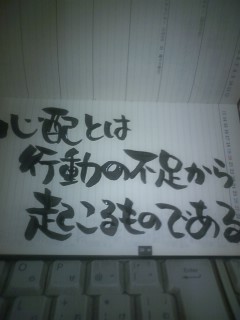 心配とは
行動の不足から
起こるものである